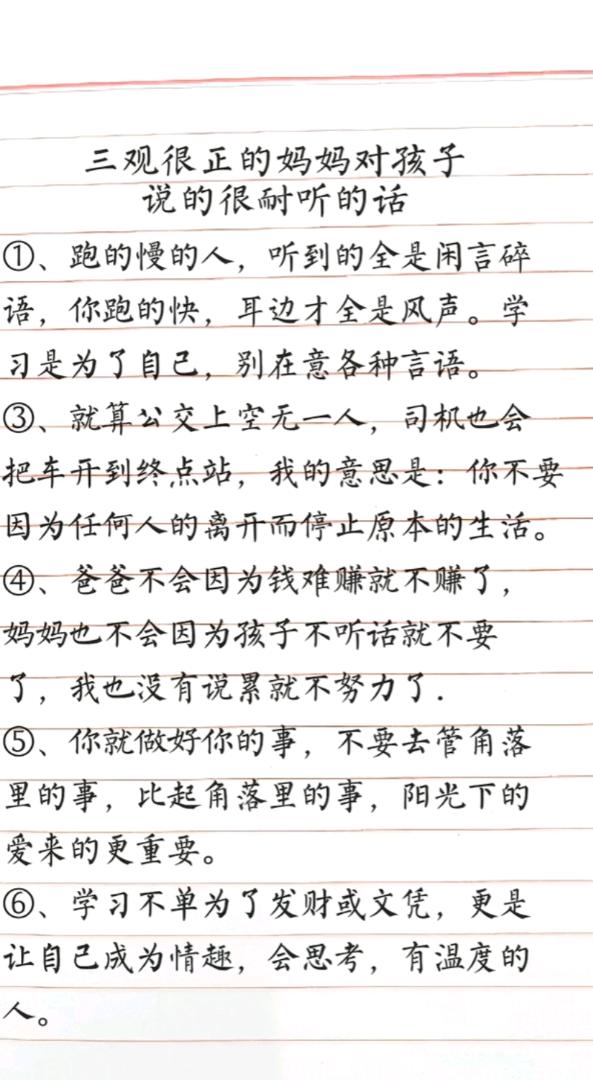 三观很正的妈妈对孩子
说的很耐听的话
①、跑的慢的人，听到的全是闲言碎
语，你跑的快，耳边才全是风声。学
习是为了自己，别在意各种言语。
③、就算公交上空无一人，司机也会
把车开到终点站，我的意思是：你不要
因为任何人的离开而停止原本的生活。
④、爸爸不会因为钱难赚就不赚了，
妈妈也不会因为孩子不听话就不要
了，我也没有说累就不努力了.
⑤、你就做好你的事，不要去管角落
里的事，比起角落里的事，阳光下的
爱来的更重要。
⑥、学习不单为了发财或文凭，更是
让自己成为情趣，会思考，有温度的
人。